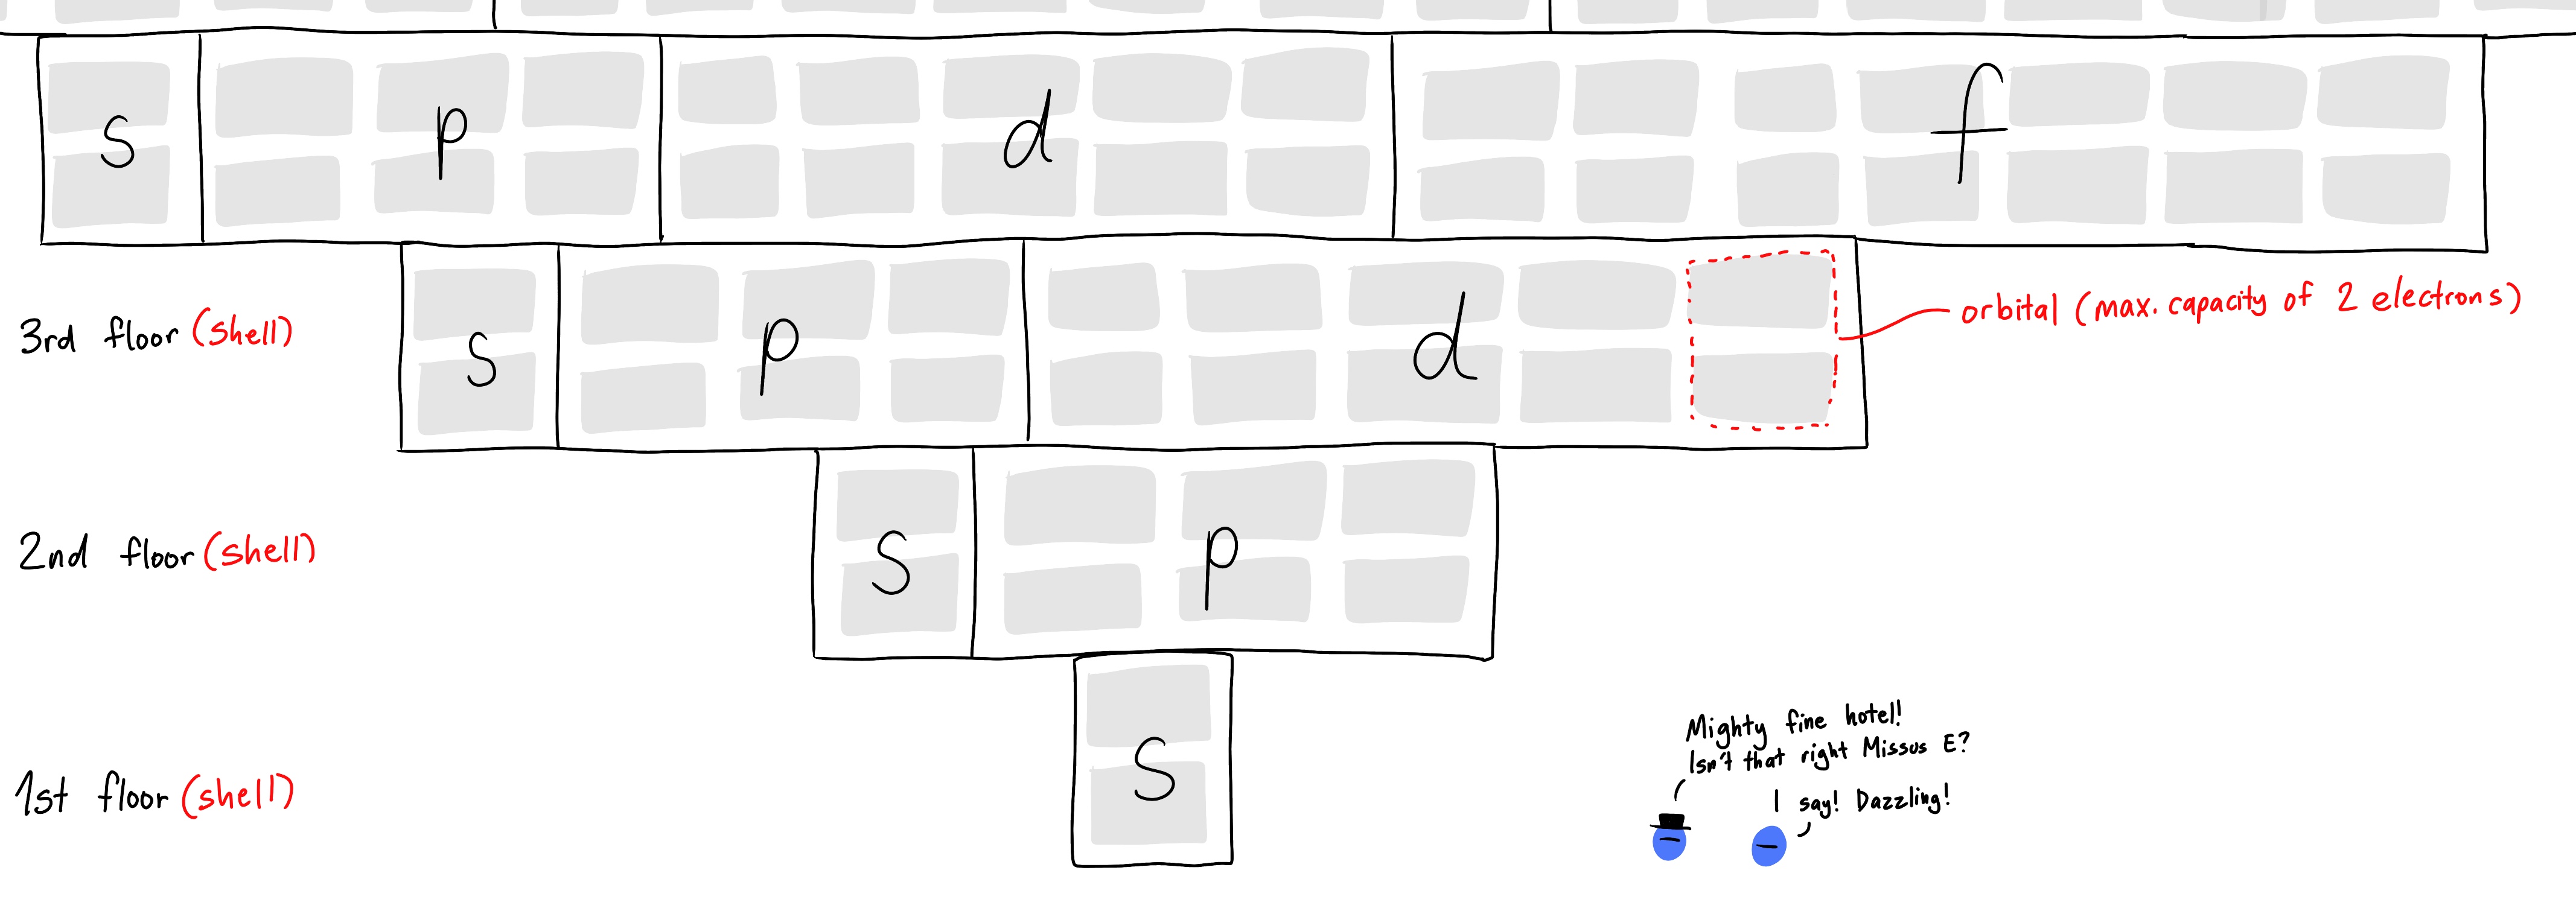 s p d f
3rd floor (shell) s p d orbital (max. capacity of 2 electrons)
2nd floor (shell) s p
1st floor (shell) s
Mighty fine hotel!
Isn't that right Missus E?
I say! Dazzling!